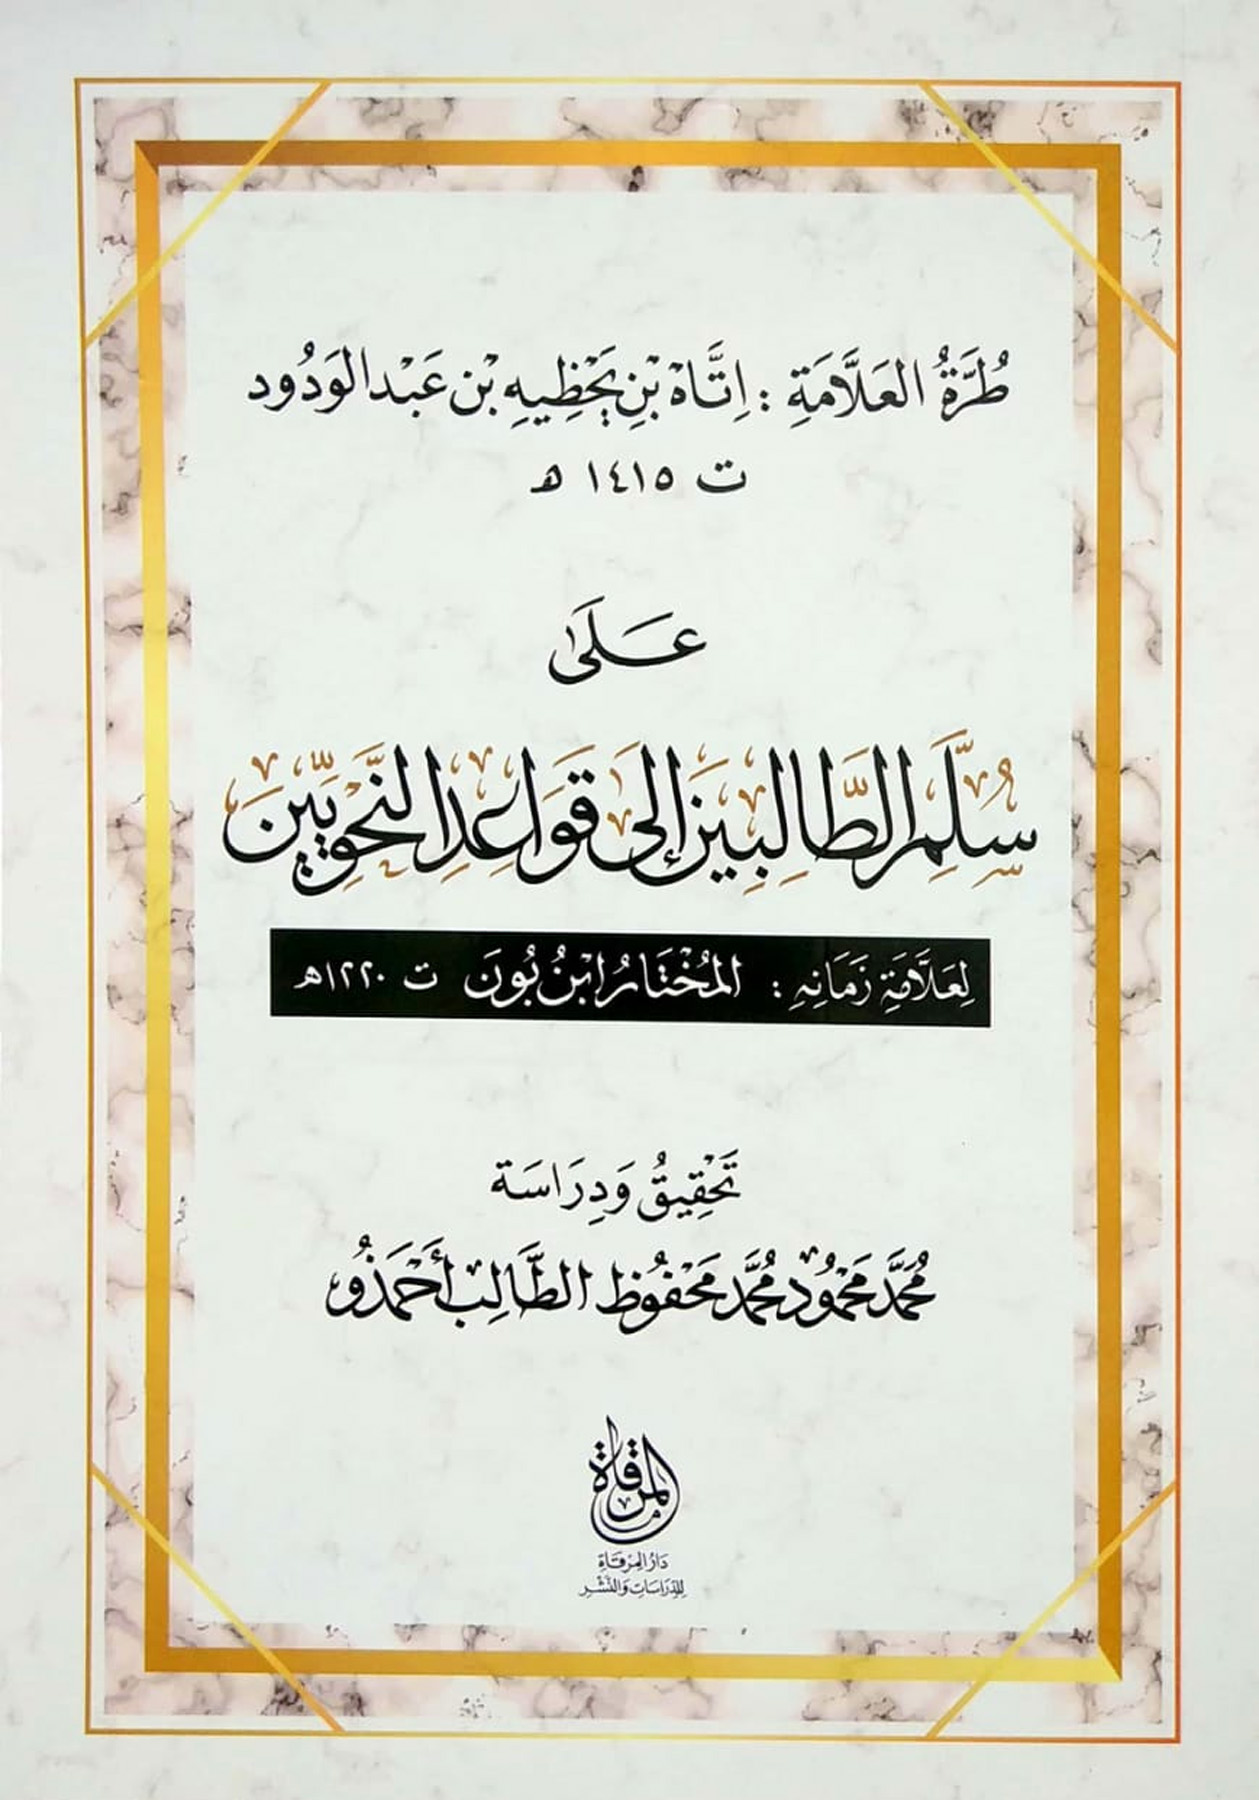 طُرَّةُ العَلَّامَةِ : اِتَّاهْ بْنِ يَحْظِيهِ بْنِ عَبْدِ الوَدُود
ت ١٤١٥ هـ
عَلَى
سُلَّمِ الطَّالِبِينَ إِلَى قَوَاعِدِ النَّحْوِيِّينَ
لِعَلَّامَةِ زَمَانِهِ : المُخْتَارُ ابْنُ بُونَ ت ١٢٢٠هـ
تَحْقِيقُ وَدِرَاسَة
مُحَمَّد مَحْمُود مُحَمَّد مَحْفُوظ الطَّالِب أَحْمَذُو
المرقاة
دَارُ المِرْقَاةِ
لِلدِّرَاسَاتِ وَالنَّشْرِ